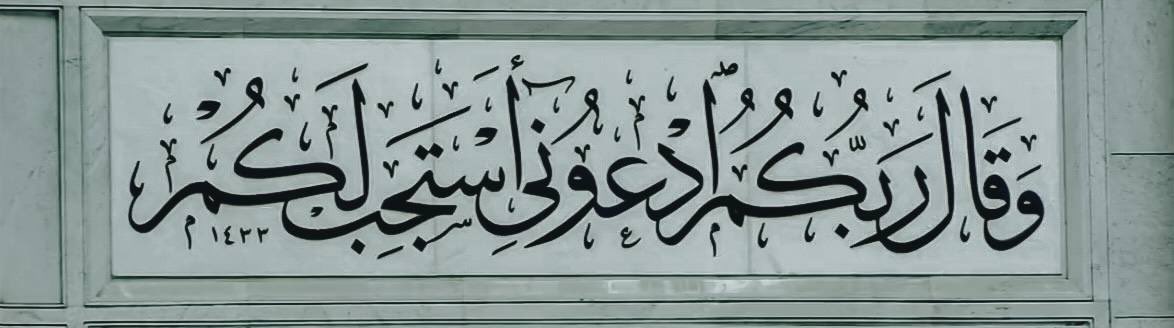 وَقَالَ رَبُّكُمُ ٱدْعُونِىٓ أَسْتَجِبْ لَكُمْ
١٤٣٣